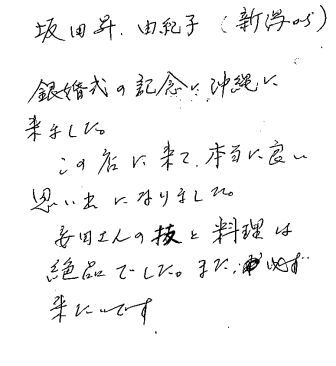 坂田昇、由紀子（新潟から）
銀婚式の記念に沖縄に
来ました。
この店に来て、本当に良い
思い出になりました。
安田さんの技と料理は
絶品でした。また、必ず
来たいです